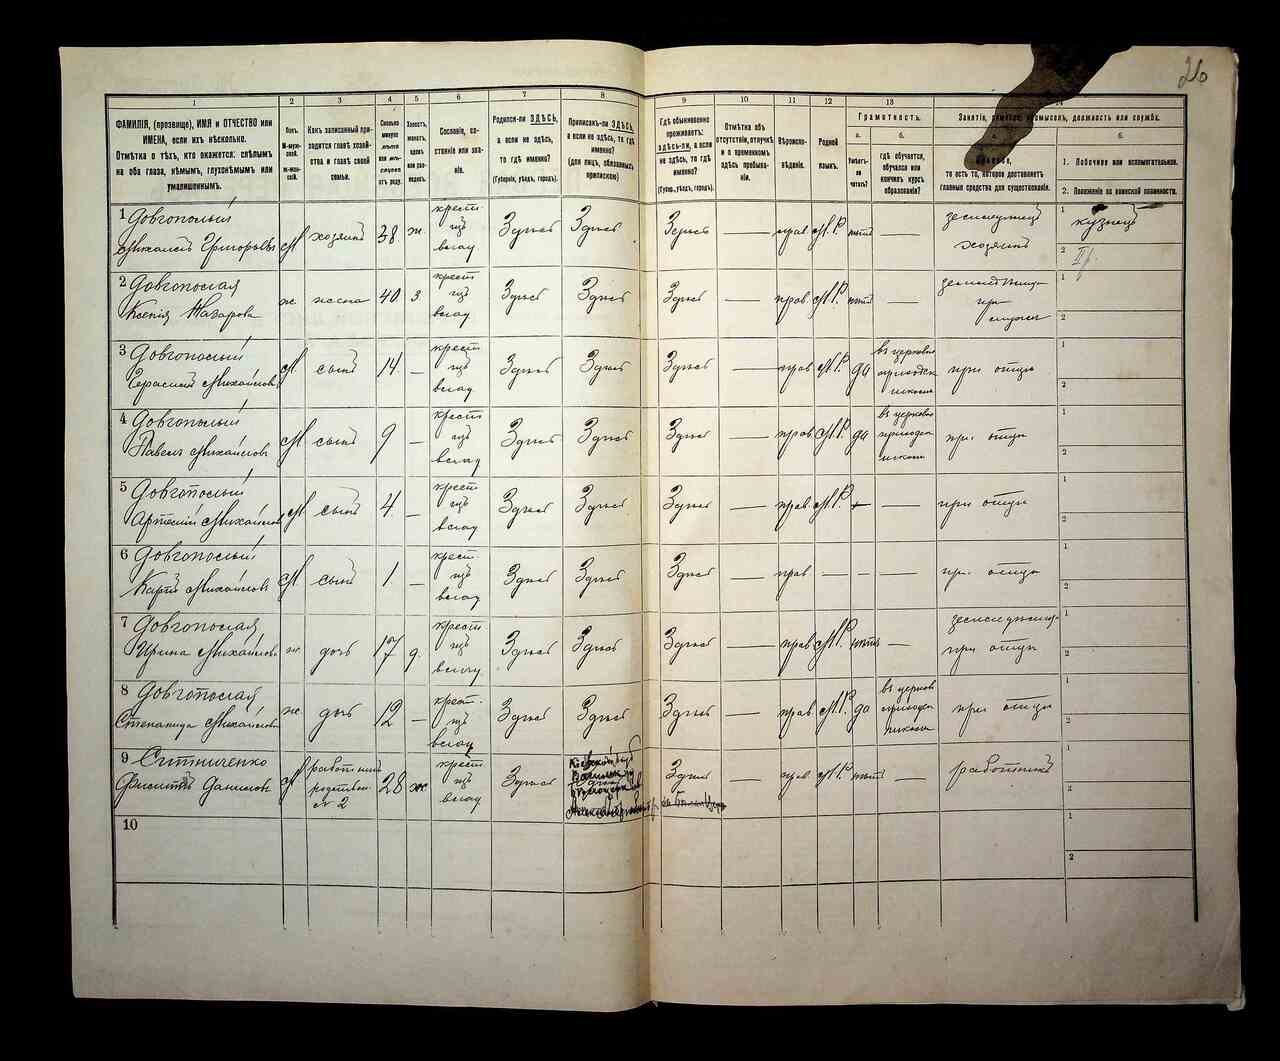 26
1 2 3 4 5 6 7 8 9 10 11 12 13
ФАМИЛІЯ, (прозвище), ИМЯ и ОТЧЕСТВО или
ИМЕНА, если ихъ нѣсколько.
Отмѣтка о тѣхъ, кто окажется: слѣпымъ
на оба глаза, нѣмымъ, глухонѣмымъ или
умалишеннымъ.
Полъ.
М-муж-
ской.
Ж-жен-
скій.
Какъ записанный при-
ходится главѣ хозяй-
ства и главѣ своей
семьи.
Сколько
минуло
лѣтъ
или мѣ-
сяцевъ
отъ роду.
Холостъ,
женатъ,
вдовъ
или раз-
веденъ.
Сословіе, со-
стояніе или зва-
ніе.
Родился-ли ЗДѢСЬ,
а если не здѣсь,
то гдѣ именно?
(Губернія, уѣздъ, городъ).
Приписанъ-ли ЗДѢСЬ,
а если не здѣсь, то гдѣ
именно?
(для лицъ, обязанныхъ
припискою)
Гдѣ обыкновенно
проживаетъ:
здѣсь-ли, а если
не здѣсь, то гдѣ
именно?
(Губерн., уѣздъ, городъ).
Отмѣтка объ
отсутствіи, отлучкѣ
и о временномъ
здѣсь пребыва-
ніи.
Вѣроиспо-
вѣданіе.
Родной
языкъ.
Грамотность.
а. б.
Умѣетъ-
ли
читать?
гдѣ обучается,
обучался или
кончилъ курсъ
образованія?
Занятіе, промыселъ, должность или служба.
то есть то, которое доставляетъ
главныя средства для существованія.
б.
1. Побочное или вспомогательное.
2. Положеніе по воинской повинности.
1 Довгополый
Михаилъ Григорьевъ М хозяинъ 38 ж. крест. изъ влад. Здѣсь Здѣсь Здѣсь — прав. М.Р. нѣтъ — хозяинъ
1 кузнецъ
2
2 Довгополая
Ксенія Назарова ж жена 40 з. крест изъ влад Здѣсь Здѣсь Здѣсь — прав. М.Р. нѣтъ — при мужѣ
1
2
3 Довгополый
Герасимъ Михайловъ М. сынъ 14. — крест изъ влад Здѣсь Здѣсь Здѣсь — прав М.Р. да въ церковно приходск школѣ при отцѣ
1
2
4 Довгополый
Павелъ Михайловъ М сынъ 9 — крест изъ влад Здѣсь Здѣсь Здѣсь — прав М.Р. да въ церковно приходск школѣ при отцѣ
1
2
5 Довгополый
Артемій Михайловъ М сынъ 4. — крест изъ влад Здѣсь Здѣсь Здѣсь — прав. М.Р. — — при отцѣ
1
2
6 Довгополый
Карпъ Михайловъ М сынъ 1 — крест. изъ влад Здѣсь Здѣсь Здѣсь — прав — — — при отцѣ
1
2
7 Довгополая
Ирина Михайлова ж. дочь 17 д. крест изъ влад Здѣсь Здѣсь Здѣсь — прав М.Р. нѣтъ — при отцѣ
1
2
8 Довгополая
Степанида Михайлова ж. дочь 12 — крест. изъ влад Здѣсь Здѣсь Здѣсь — прав М.Р. да въ церков приходск школѣ при отцѣ
1
2
9 Ситниченко
Даниловъ М работникъ № 2 28 ж крест изъ влад Здѣсь Здѣсь — прав. М.Р. нѣтъ — работникъ
1
2
10
1
2